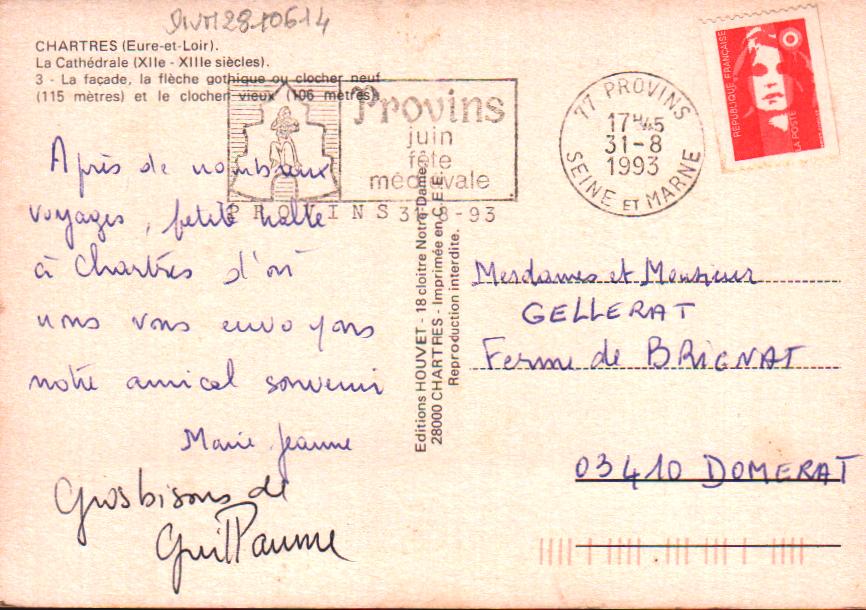 DIVM2810614
CHARTRES (Eure-et-Loir).
La Cathédrale (XIIe - XIIIe siècles).
3 - La façade, la flèche gothique ou clocher neuf
(115 mètres) et le clocher vieux (106 mètres)
Provins
juin
fête
médiévale
PROVINS 31-8-93
77 PROVINS
17H45
31-8
1993
SEINE ET MARNE
RÉPUBLIQUE FRANÇAISE
LA POSTE
Après de nombreux
voyages, petite halte
à Chartres d'où
nous vous envoyons
notre amical souvenir
Marie Jeanne
Gros bisous de
Guillaume
Editions HOUVET - 18 cloitre Notre-Dame
28000 CHARTRES - Imprimée en C.E.E.
Reproduction interdite.
Mesdames et Monsieur
GELLERAT
Ferme de BRIGNAT
03410 DOMERAT